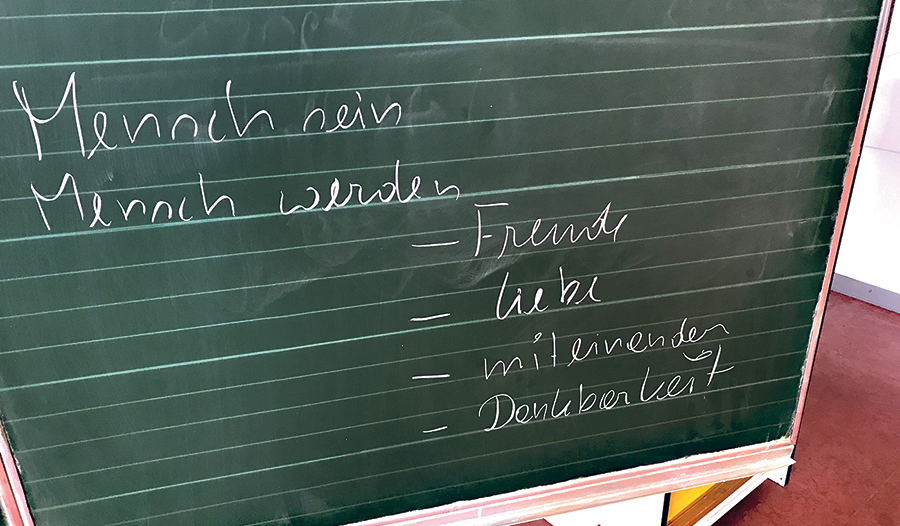 Mensch sein
Mensch werden
– Freude
– Liebe
– miteinander
– Dankbarkeit